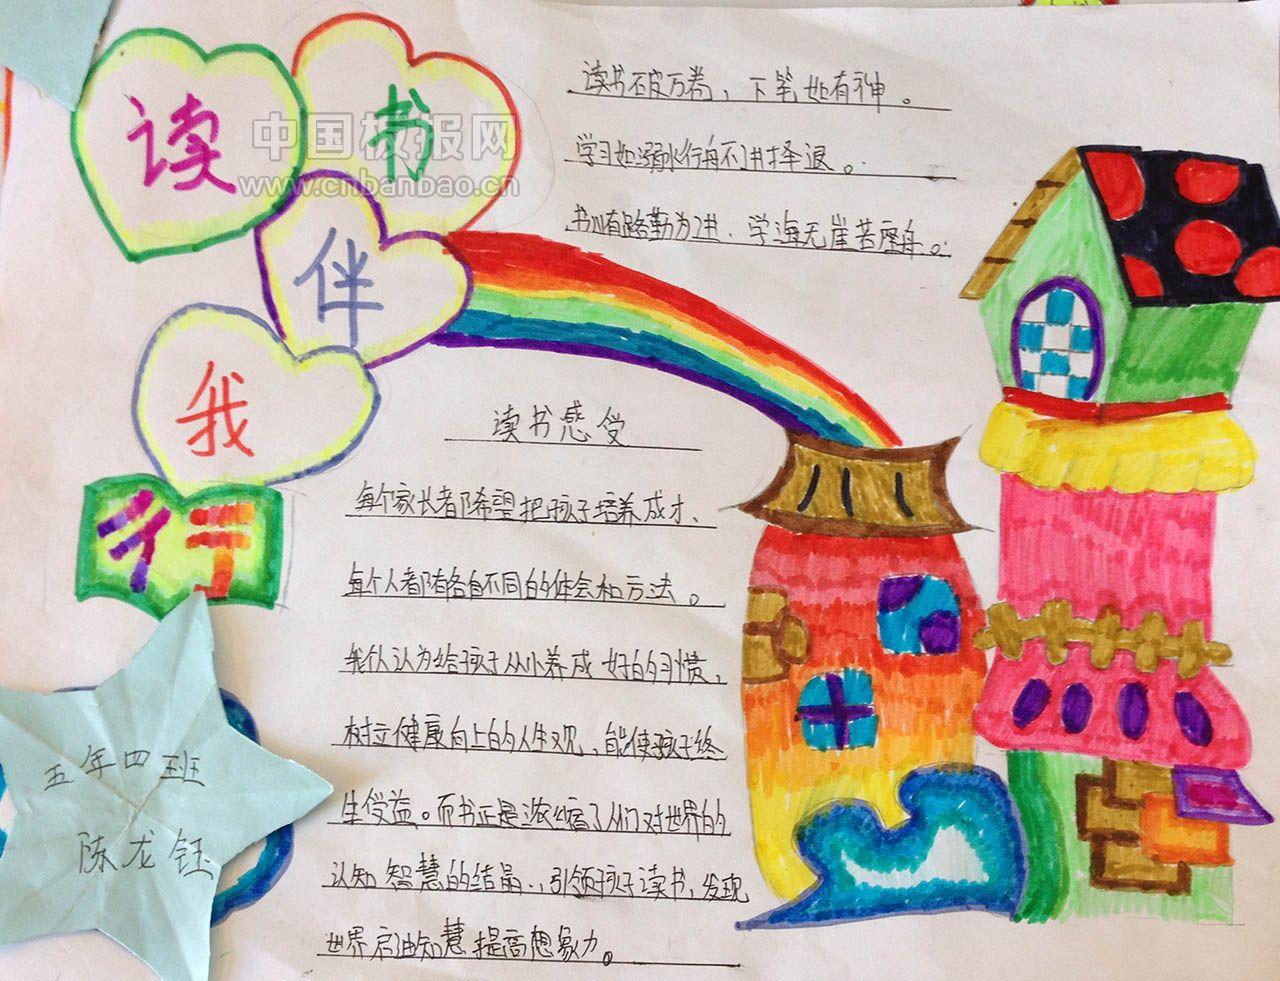 读书
伴
我
行
中国板报网
www.cnbanbao.cn
读书破万卷，下笔如有神。
学习如溺水行舟不进择退。
书山有路勤为进、学海无崖苦度舟。
读书感受
每个家长者都希望把孩子培养成才、
每个人者都有各自不同的的体会和方法。
我个人认为给孩子从小养成好的习惯，
树立健康向上的人生观、能使孩子终
生受益。而书正是浓缩了人们对世界的
认知智慧的结晶．，引领孩子读书，发现
世界启迪知慧提高想象力。
五年四班
陈龙钰